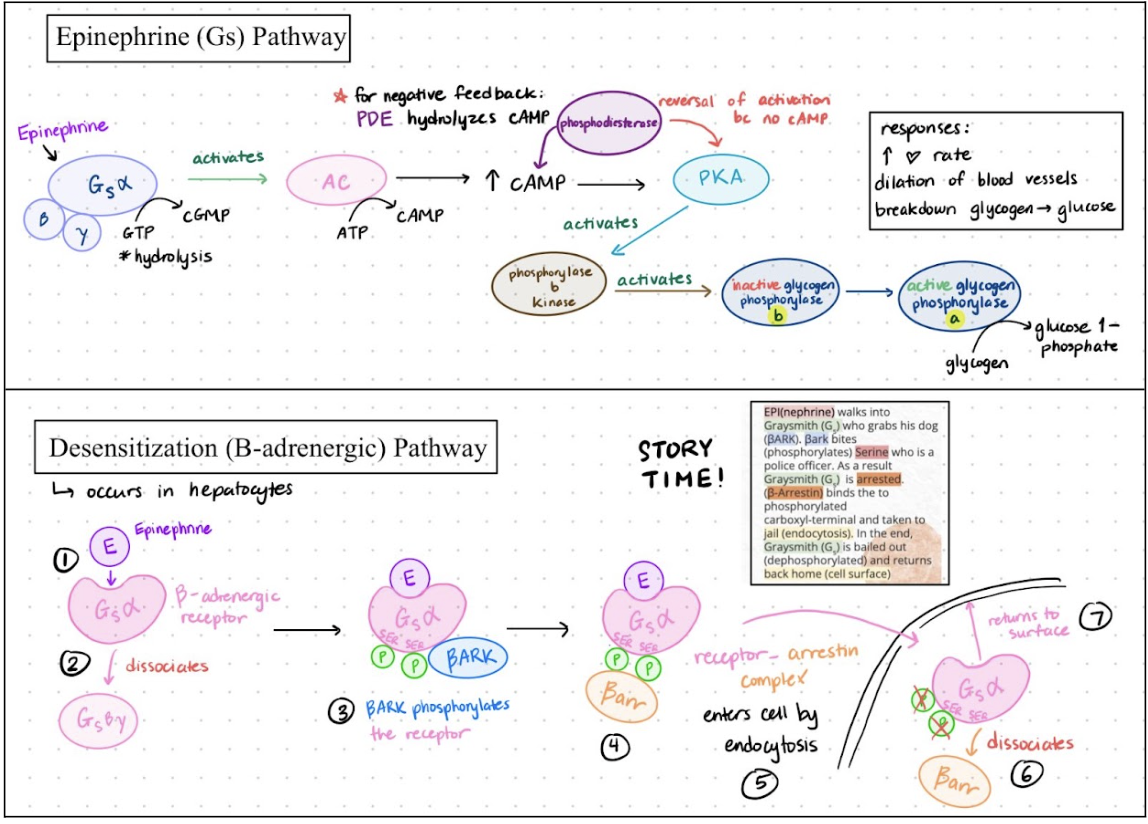 Epinephrine (Gs) Pathway
☆ for negative feedback:
PDE hydrolyzes cAMP
phosphodiesterase
reversal of activation
bc no cAMP
responses:
↑ ♡ rate
dilation of blood vessels
breakdown glycogen → glucose
Epinephrine
Gsα
β
γ
GTP
cGMP
*hydrolysis
activates
AC
ATP
cAMP
↑ cAMP
PKA
activates
phosphorylase
b
kinase
activates
inactive glycogen
phosphorylase
b
active glycogen
phosphorylase
a
glycogen
glucose 1-
phosphate
Desensitization (B-adrenergic) Pathway
↳ occurs in hepatocytes
STORY
TIME!
EPI(nephrine) walks into
Graysmith (Gs) who grabs his dog
(βARK). βark bites
(phosphorylates) Serine who is a
police officer. As a result
Graysmith (Gs) is arrested.
(β-Arrestin) binds the to
phosphorylated
carboxyl-terminal and taken to
jail (endocytosis). In the end,
Graysmith (Gs) is bailed out
(dephosphorylated) and returns
back home (cell surface)
1
E
Epinephrine
Gsα
β-adrenergic
receptor
2
dissociates
Gsβγ
E
Gsα
SER SER
P
P
BARK
3
BARK phosphorylates
the receptor
E
Gsα
SER SER
P
P
Barr
4
receptor- arrestin
complex
enters cell by
endocytosis
5
returns to
surface
7
Gsα
SER SER
P
P
dissociates
6
Barr